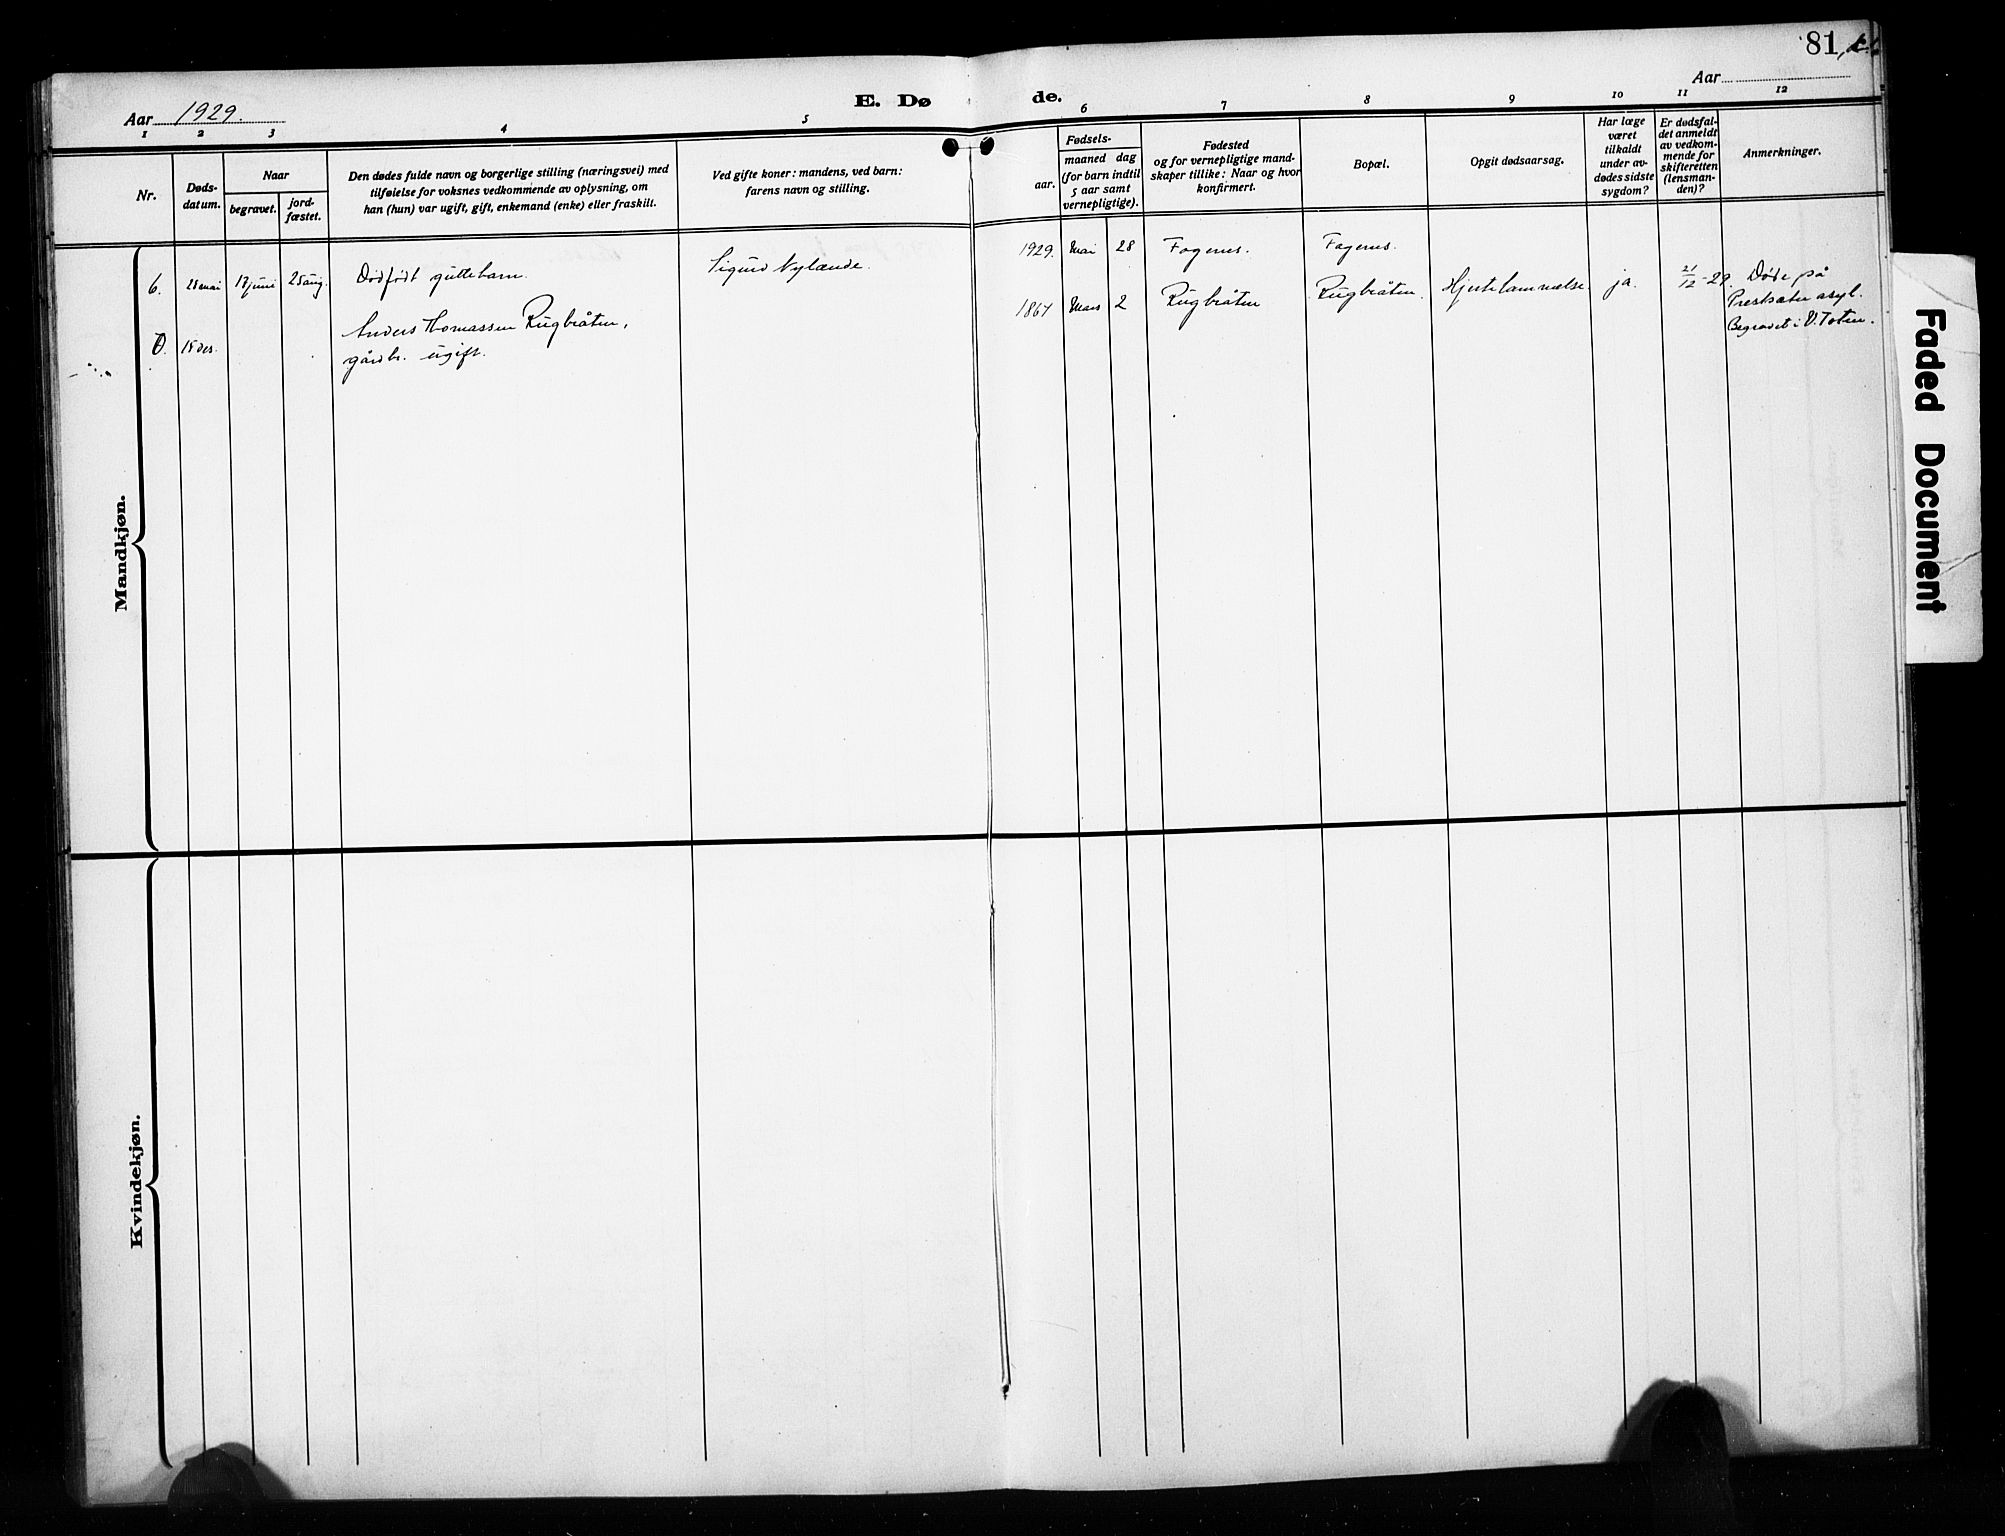 81
Aar 1929.
E. Dø de.
Aar
1 2 3 4 5 6 7 8 9 10 11 12
Nr.
Døds-
datum.
Naar
begravet.
jord-
fæstet.
Den dødes fulde navn og borgerlige stilling (næringsvei) med
tilføielse for voksnes vedkommende av oplysning, om
han (hun) var ugift, gift, enkemand (enke) eller fraskilt.
Ved gifte koner: mandens, ved barn:
farens navn og stilling.
Fødsels-
aar.
maaned dag
(for barn indtil
5 aar samt
vernepligtige).
Fødested
og for vernepligtige mand-
skaper tillike: Naar og hvor
konfirmert.
Bopæl.
Opgit dødsaarsag.
Har læge
været
tilkaldt
under av-
dødes sidste
sygdom?
Er dødsfal-
det anmeldt
av vedkom-
mende for
skifteretten
(lensman-
den)?
Anmerkninger.
Mandkjøn.
6. 28 mai 13 juni 25 aug. Dødfødt guttebarn. Sigurd Nylænde. 1929. Mai 28 Fagernes. Fagernes.
15 des. Anders Thomassen Rugbråten, 1867 Mars 2 Rugbråten Rugbråten. Hjertelammelse. ja. 21/12-29. Døde på
gårdbr. ugift. Prestsæter asyl.
Begravet i V. Toten.
Kvindekjøn.
Faded Document